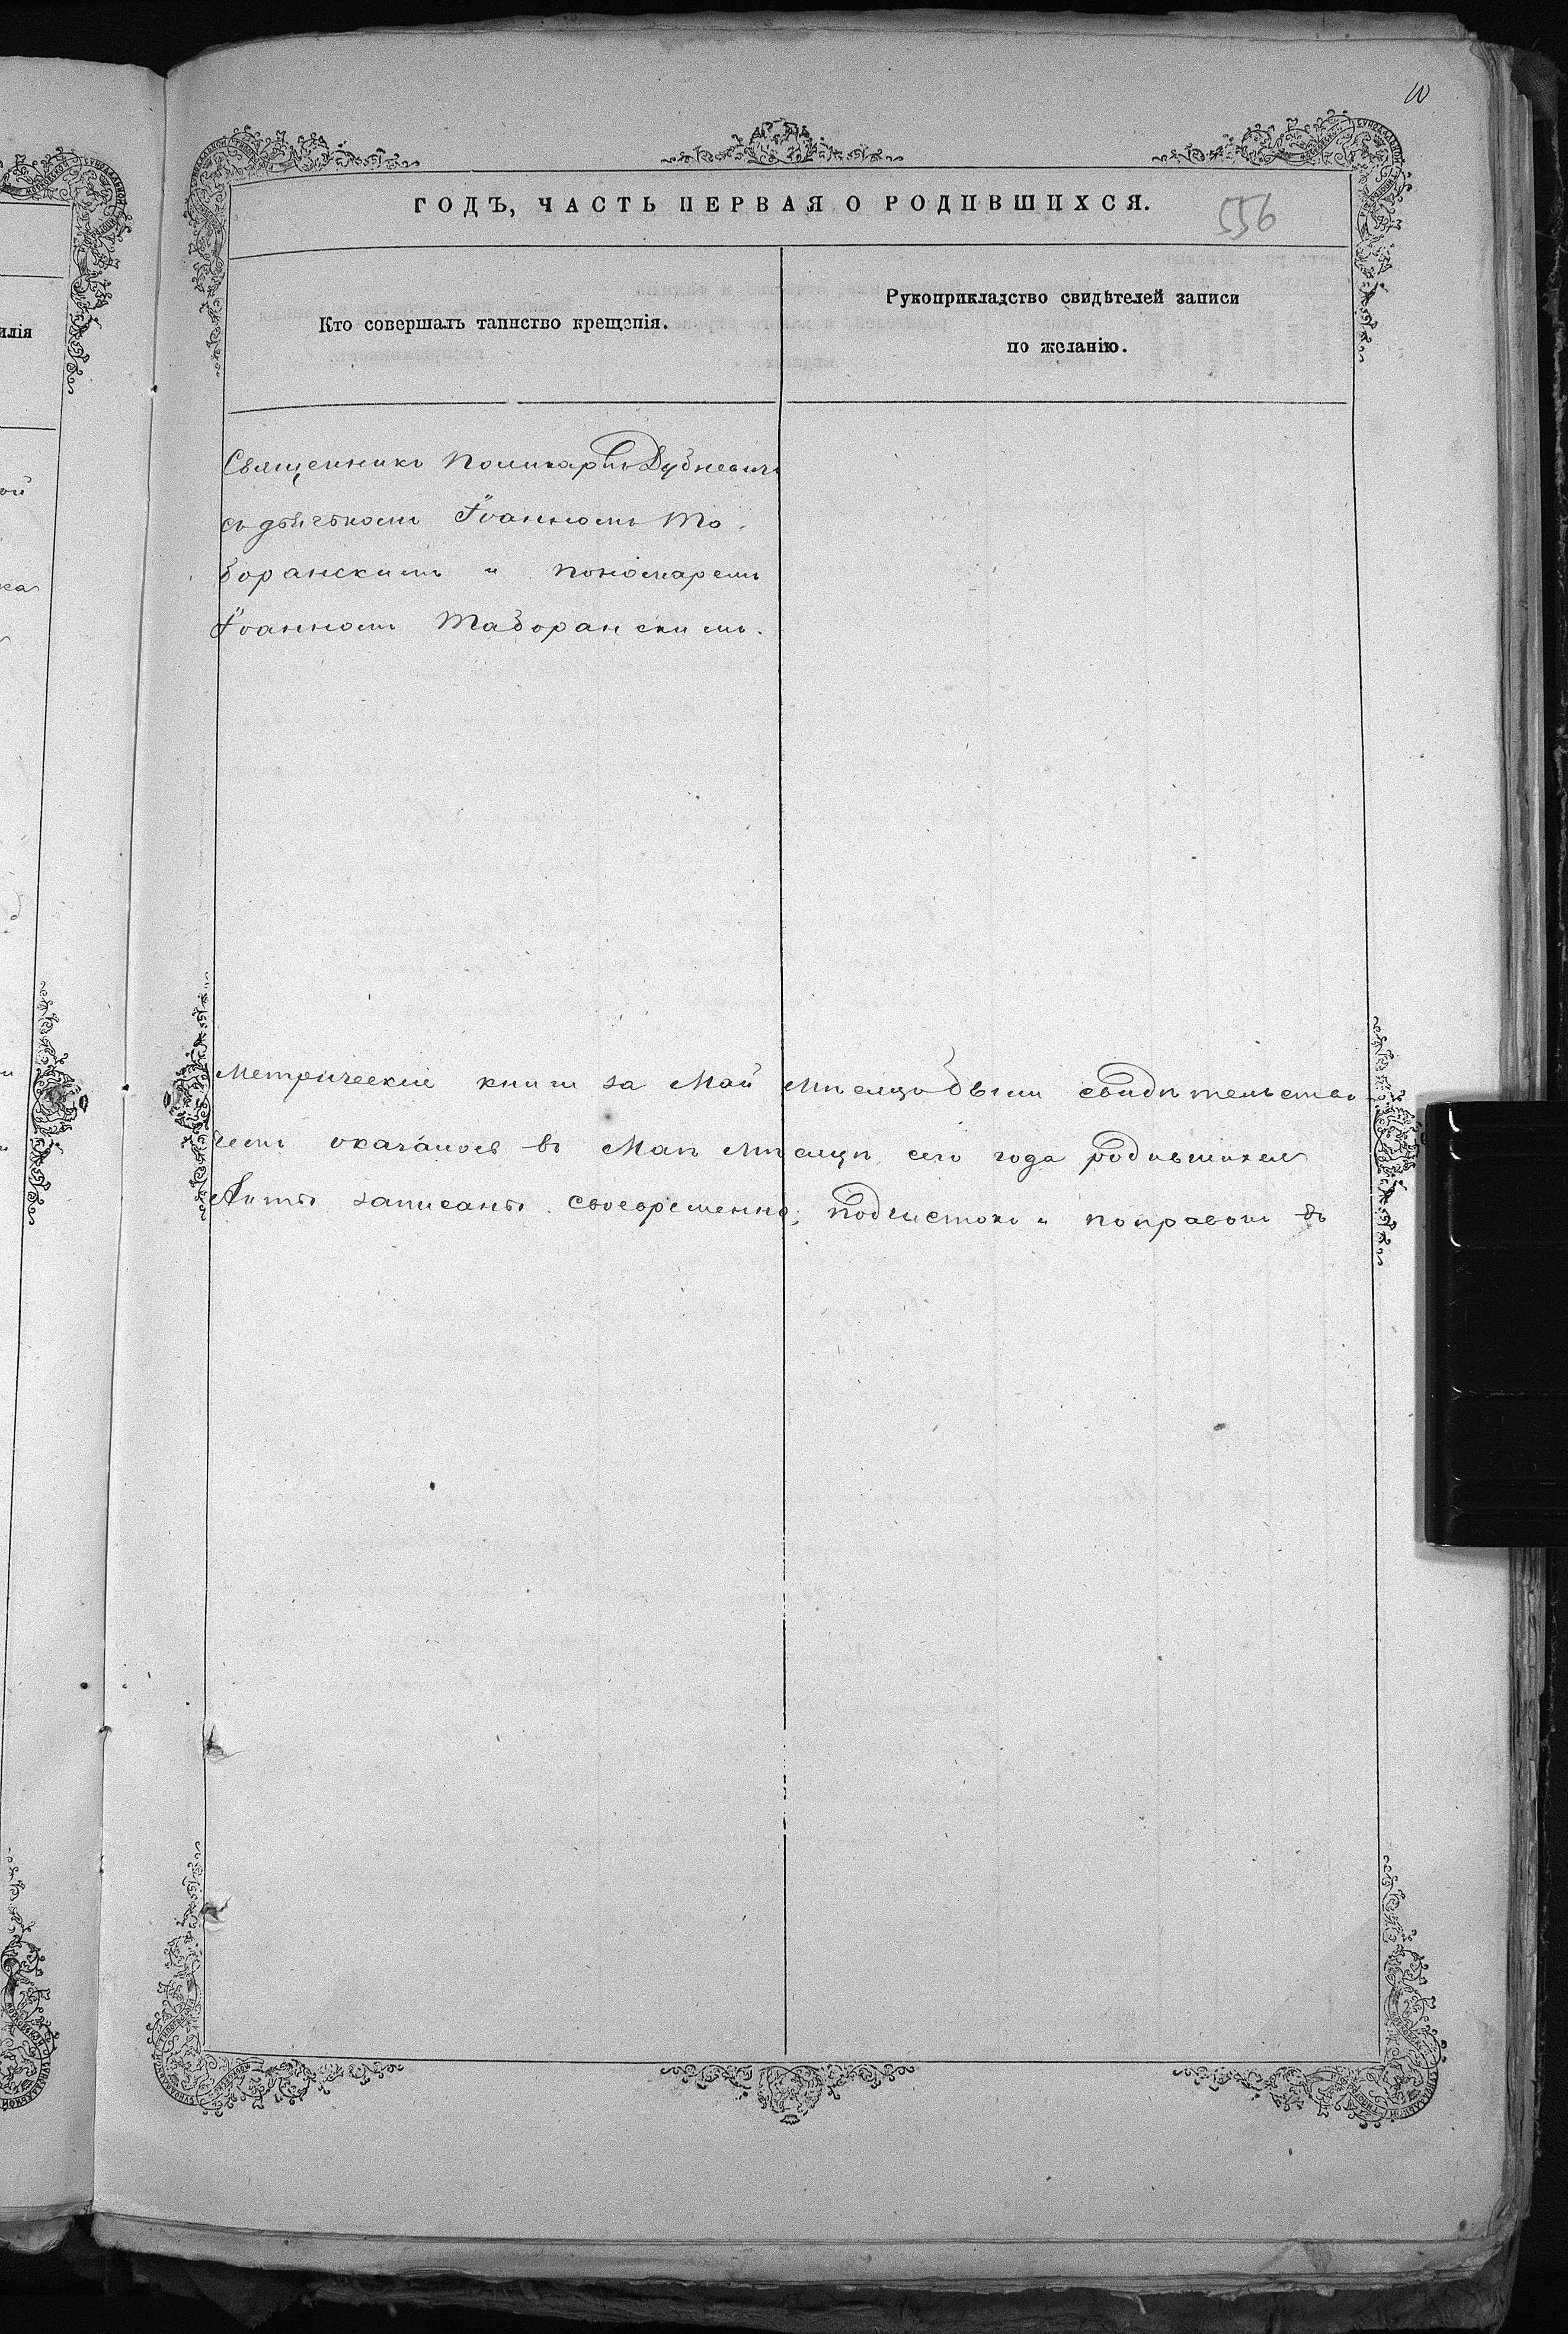 ГОДЪ, ЧАСТЬ ПЕРВАЯ О РОДИВШИХСЯ.
556
Кто совершалъ таинство крещенія.
Рукоприкладство свидѣтелей записи
по желанію.
Священникъ Поликарпъ Дубневичъ
съ дьячкомъ Іоанномъ Та
боранскимъ и пономаремъ
Іоанномъ Таборанскимъ.
Метрическіе книги за Май мѣсяцъ были свидѣтельство
оказалось въ Маѣ мѣсяцѣ сего года родившихся
Акты записаны своевременно, подчистокъ и поправокъ въ
илія